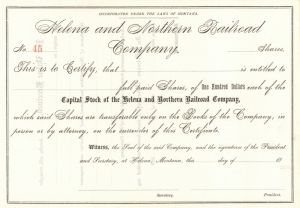 INCORPORATED UNDER THE LAWS OF MONTANA.
Helena and Northern Railroad
No. 45 Company. Shares.
This is to Certify, that is entitled to
full paid Shares, of One Hundred Dollars each of the
Capital Stock of the Helena and Northern Railroad Company,
which said Shares are transferable only on the Books of the Company, in
person or by attorney, on the surrender of this Certificate.
Witness, the Seal of the said Company, and the signatures of the President
and Secretary, at Helena, Montana, this day of 18
Secretary. President.